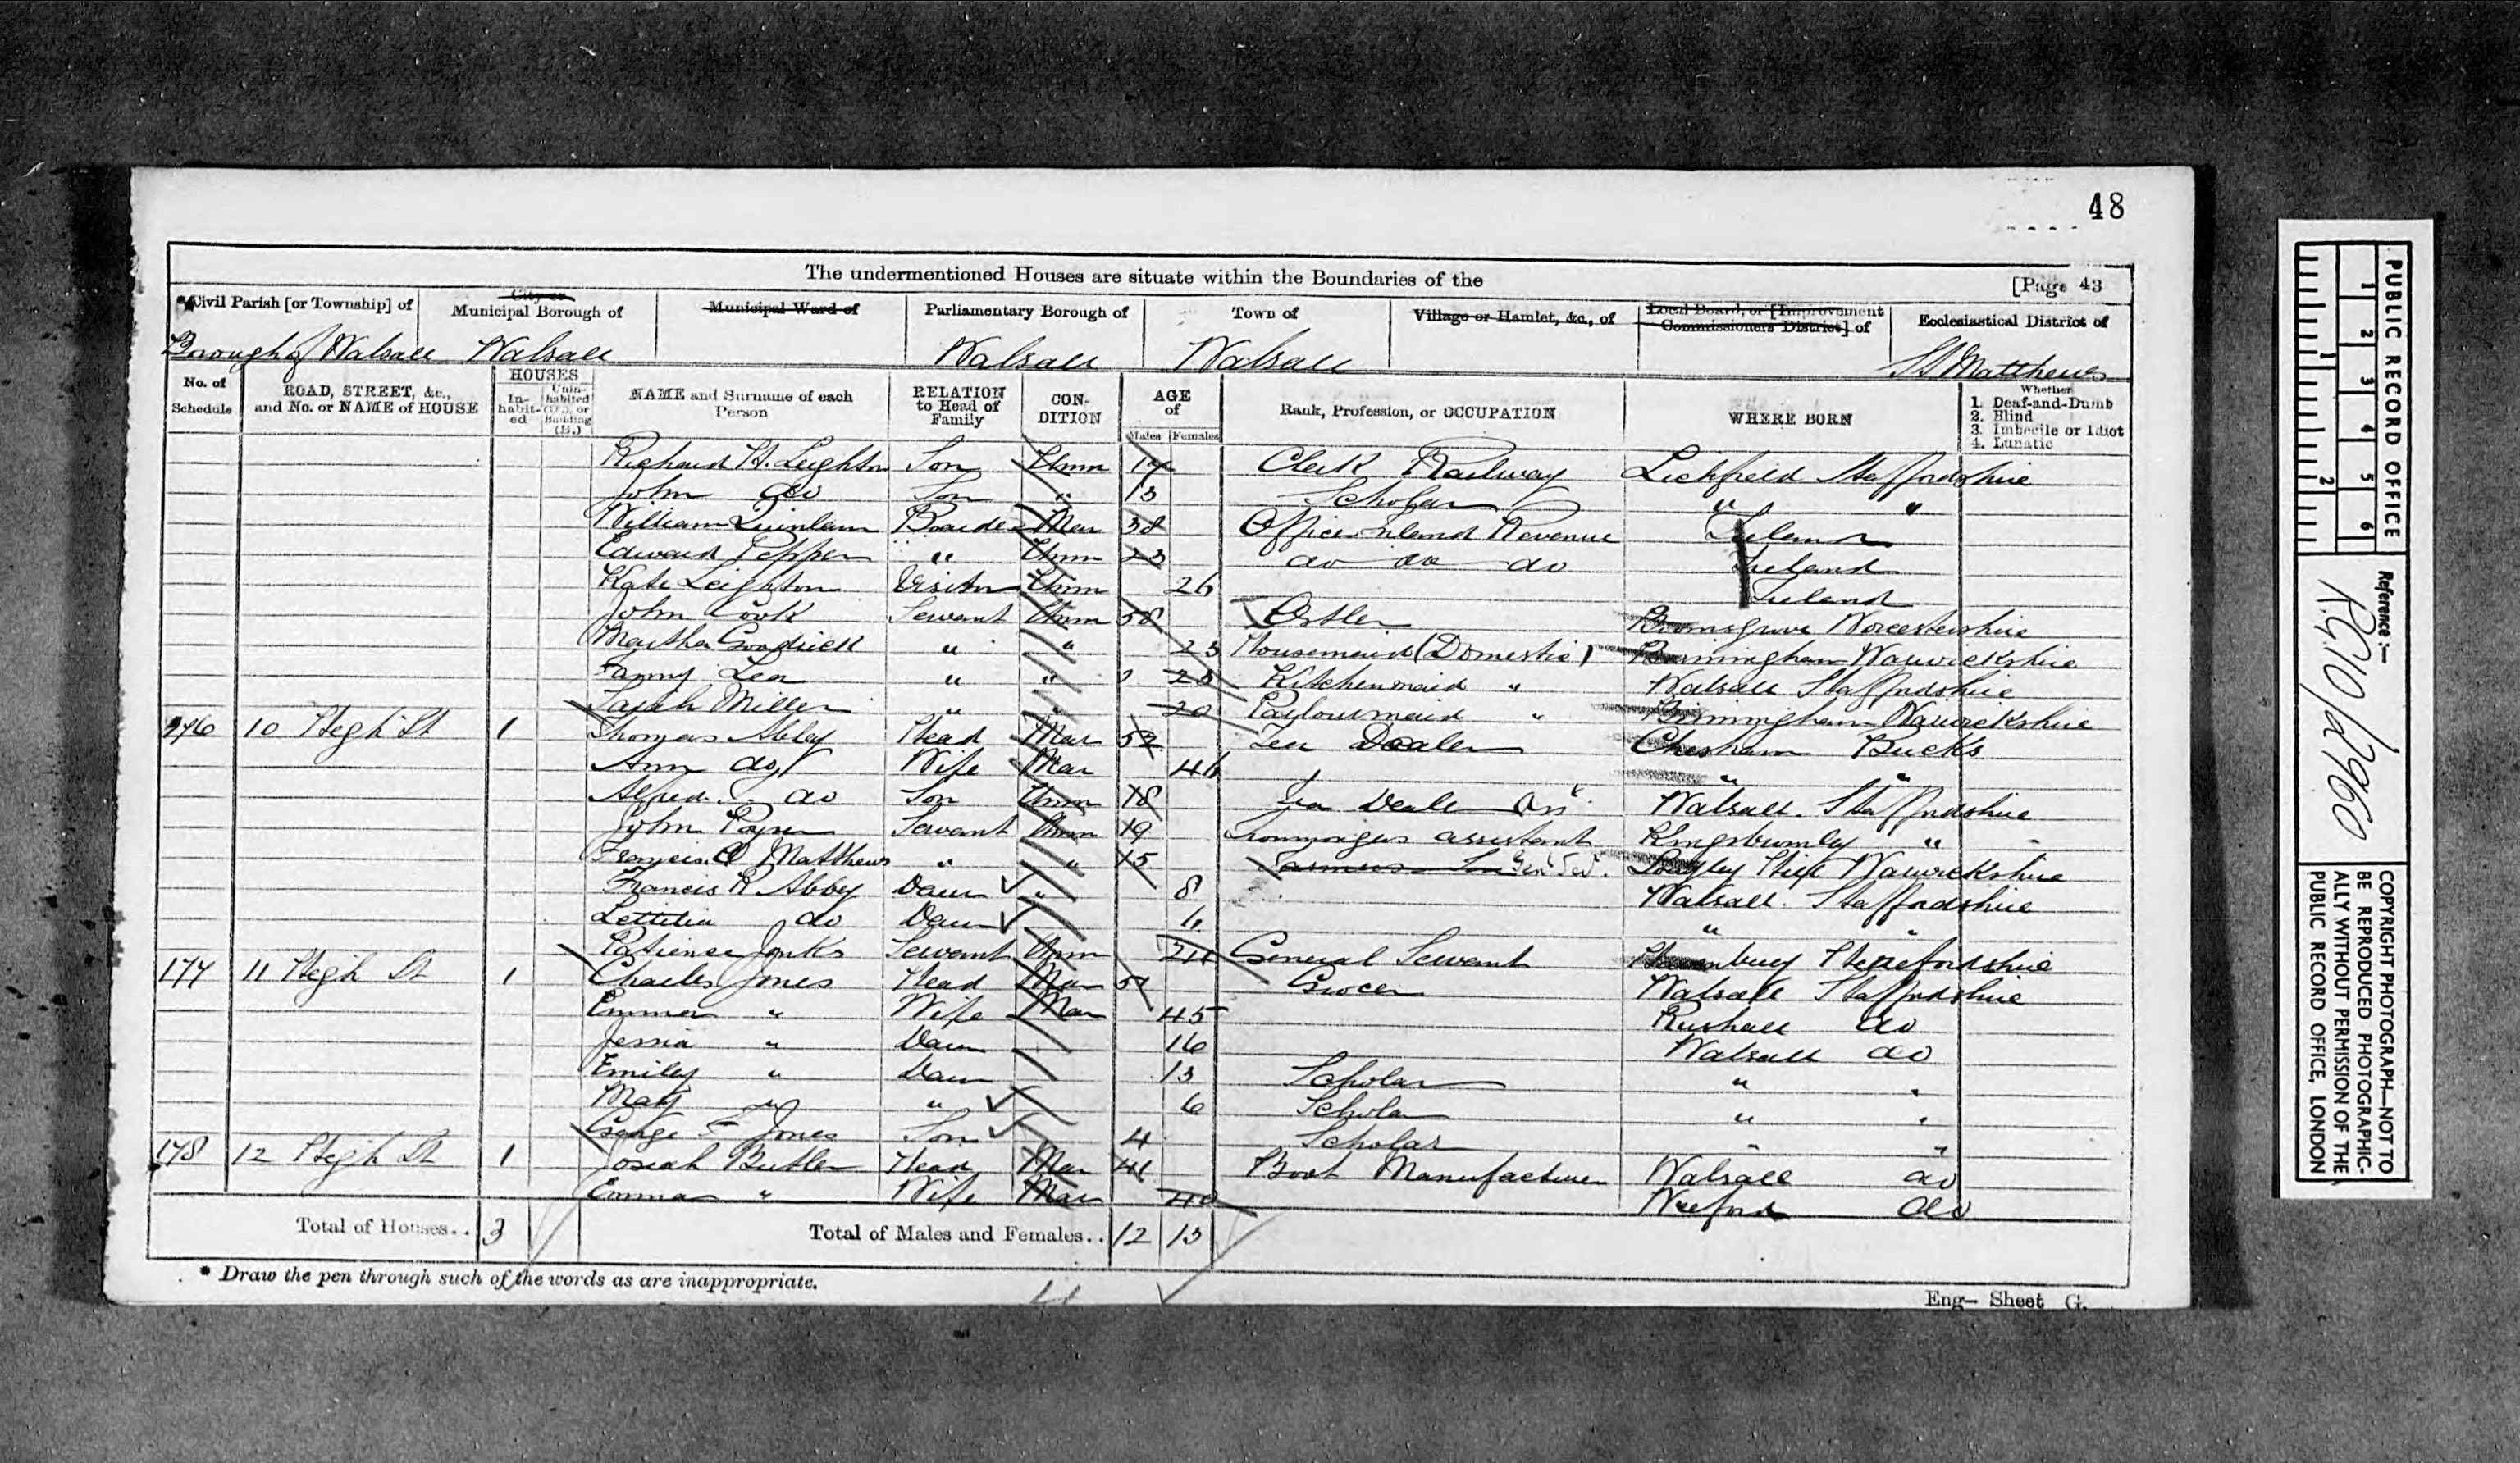 48
The undermentioned Houses are situate within the Boundaries of the
[Page 43
Civil Parish [or Township] of
City or Municipal Borough of
Municipal Ward of
Parliamentary Borough of
Town of
Village or Hamlet, &c., of
Local Board, or [Improvement Commissioners District] of
Ecclesiastical District of
Borough of Walsall Walsall Walsall Walsall St Matthews
No. of Schedule
ROAD, STREET, &c., and No. or NAME of HOUSE
HOUSES
In-habit-ed
Unin-habited (U.), or Building (B.)
NAME and Surname of each Person
RELATION to Head of Family
CON-DITION
AGE of
Males Females
Rank, Profession, or OCCUPATION
WHERE BORN
Whether
1. Deaf-and-Dumb
2. Blind
3. Imbecile or Idiot
4. Lunatic
Richard H. Leighton Son Unm 17 Clerk Railway Lichfield Staffordshire
John do Son " 13 Scholar " "
William Quinlan Boarder Mar 38 Officer Inland Revenue Ireland
Edward Pepper " Unm 23 do do do Ireland
Kate Leighton Visitor Unm 26 Ireland
John Cook Servant Unm 58 Ostler Bromsgrove Worcestershire
Martha Goodrick " " 23 Housemaid (Domestic) Birmingham Warwickshire
Fanny Lea " " 28 Kitchenmaid " Walsall Staffordshire
Sarah Miller " " 20 Parlourmaid " Birmingham Warwickshire
276 10 High St 1 Thomas Abbey Head Mar 52 Tea Dealer Chesham Bucks
Ann do Wife Mar 46 " "
Alfred do Son Unm 18 Tea Deale Ass't Walsall. Staffordshire
John Servant Unm 19 Ironmongers assistant Kingsbromley "
Francis Matthews " " 15 Farmers Son Gen' Ser'. Hill Warwickshire
Francis R Abbey Daur " 8 Walsall. Staffordshire
Lettitia do Daur 6 " "
Patience Jenks Servant Unm 24 General Servant Herefordshire
177 11 High St 1 Charles Jones Head Mar 51 Grocer Walsall Staffordshire
Emma " Wife Mar 45 Rushall do
Jessia " Daur 16 Walsall do
Emilly " Daur 13 Scholar " "
Mary " " 6 Schola " "
George F Jones Son 4 Scholar " "
178 12 High St 1 Josiah Butler Head Mar 41 Boot Manufacturer Walsall do
Emma " Wife Mar 40 Weeford do
Total of Houses.. 3 Total of Males and Females.. 12 13
* Draw the pen through such of the words as are inappropriate.
Eng- Sheet G.
PUBLIC RECORD OFFICE
1 2 3 4 5 6
1 2
Reference:-
RG10/2960
COPYRIGHT PHOTOGRAPH—NOT TO
BE REPRODUCED PHOTOGRAPHIC-
ALLY WITHOUT PERMISSION OF THE
PUBLIC RECORD OFFICE, LONDON